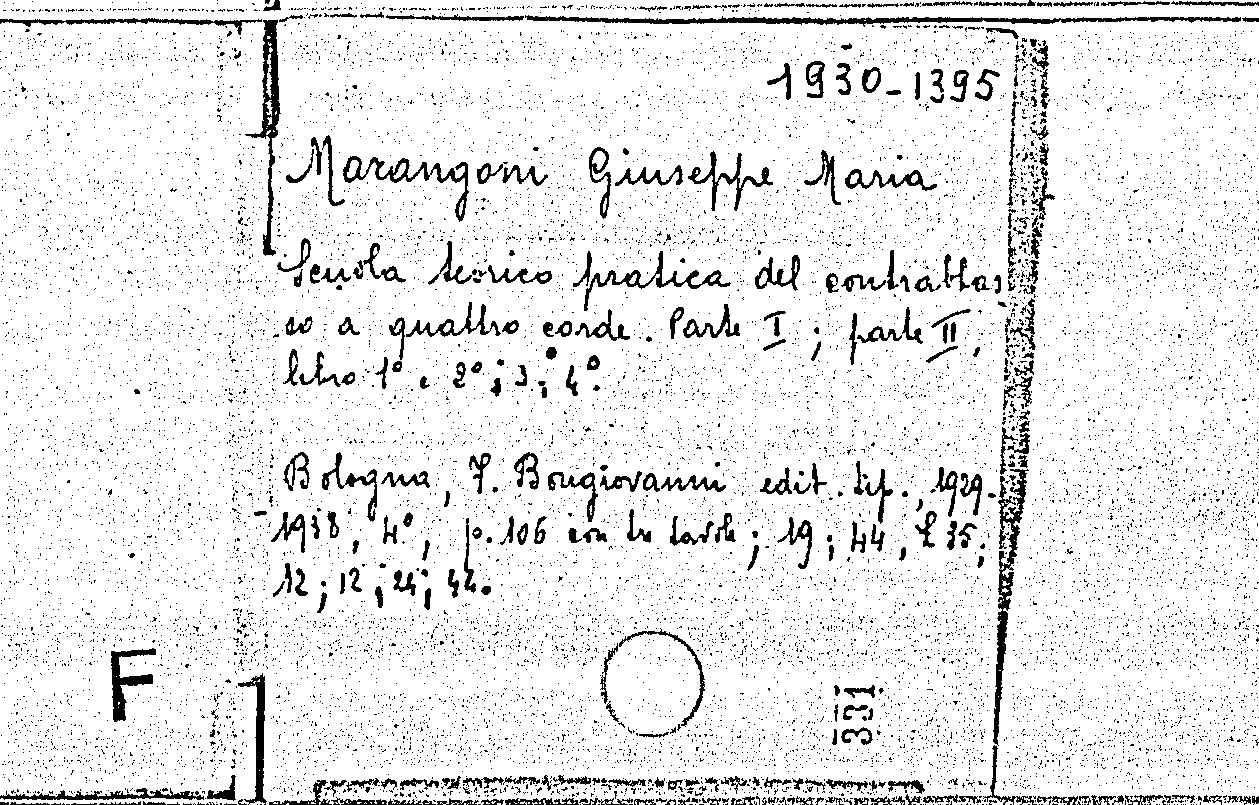 1930-1395
Marangoni Giuseppe Maria
Scuola teorico pratica del contrabbas
so a quattro corde. Parte I ; parte II,
libro 1° e 2° ; 3 ;° 4°.
Bologna, F. Bongiovanni edit. tip., 1929-
1938, 4°, p. 106 con tre tavole ; 19 ; 44, £ 35;
12 ; 12 ; 24 ; 42.
F
331